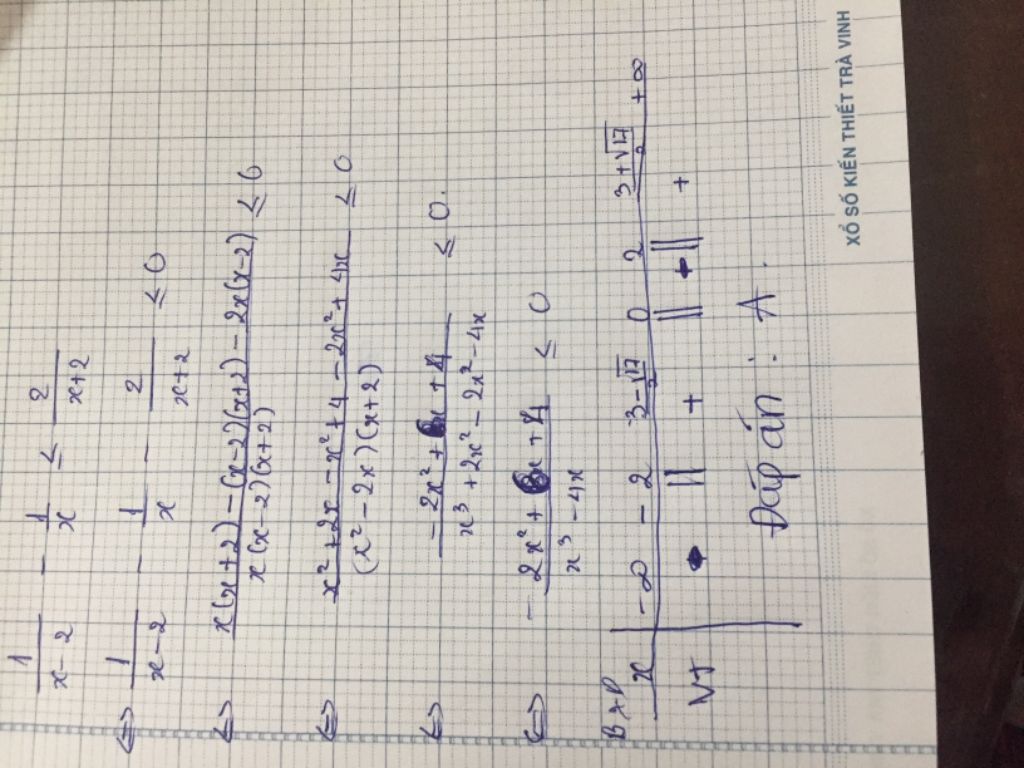 1/(x-2) - 1/x ≤ 2/(x+2)
⇔ 1/(x-2) - 1/x - 2/(x+2) ≤ 0
⇔ (x(x+2) - (x-2)(x+2) - 2x(x-2))/(x(x-2)(x+2)) ≤ 0
⇔ (x² + 2x - x² + 4 - 2x² + 4x)/((x² - 2x)(x+2)) ≤ 0
⇔ (-2x² + x + 4)/(x³ + 2x² - 2x² - 4x) ≤ 0.
⇔ (-2x² + x + 4)/(x³ - 4x) ≤ 0
BXD
x | -∞ -2 (3-√17)/2 0 2 (3+√17)/2 +∞
VT || + || || +
Đáp án : A.
XỔ SỐ KIẾN THIẾT TRÀ VINH